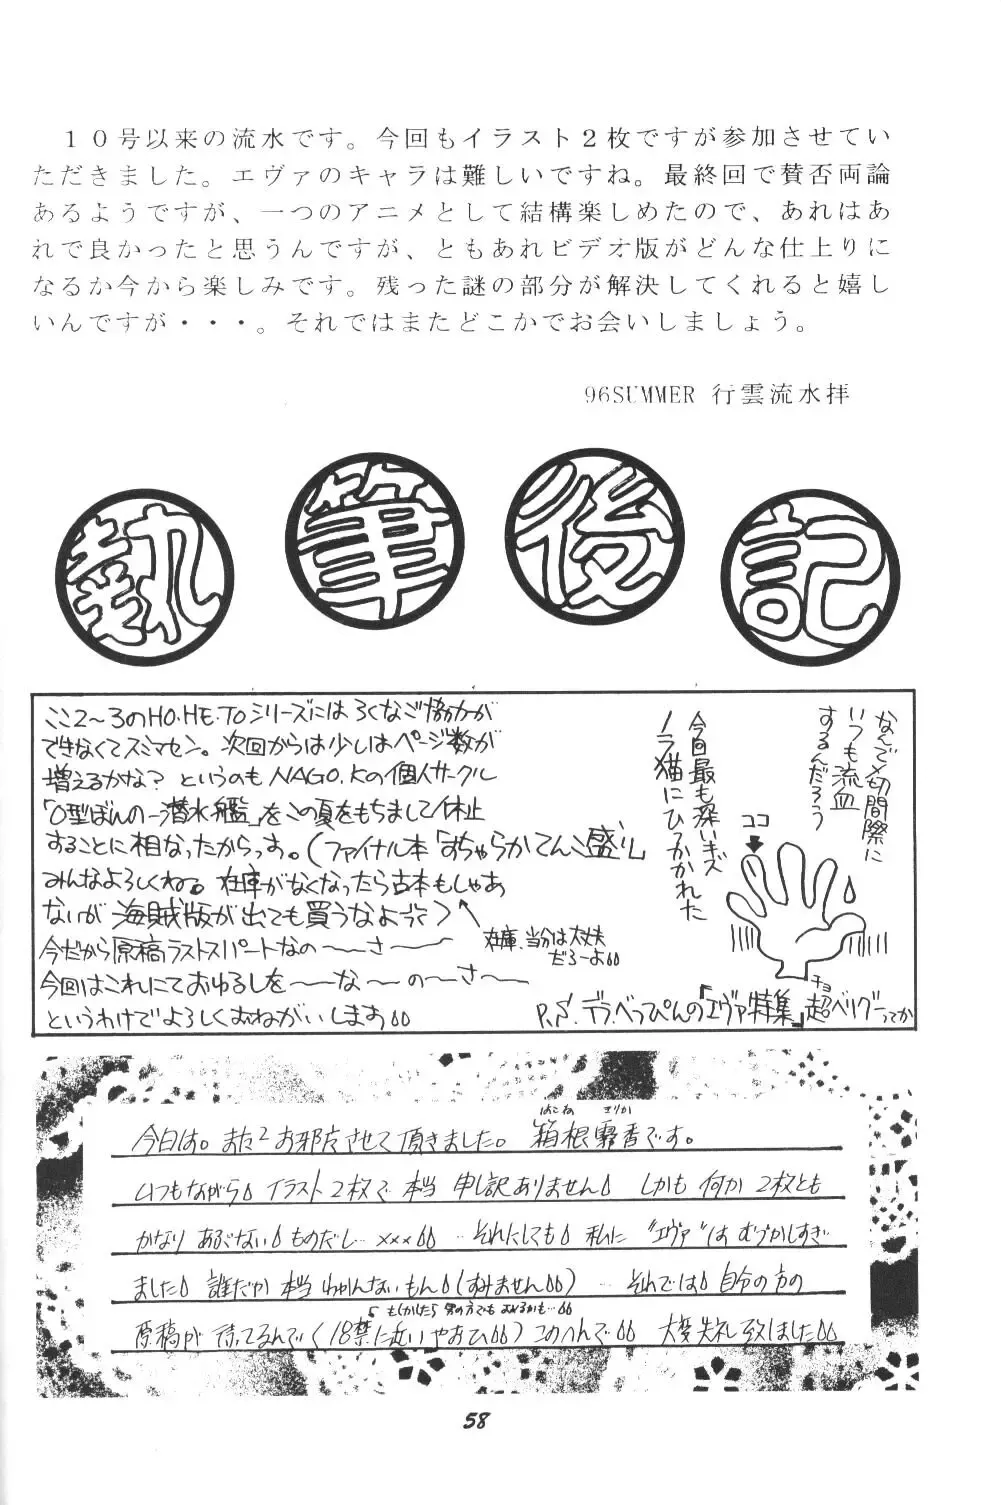 １０号以来の流水です。今回もイラスト２枚ですが参加させてい
ただきました。エヴァのキャラは難しいですね。最終回で賛否両論
あるようですが、一つのアニメとして結構楽しめたので、あれはあ
れで良かったと思うんですが、ともあれビデオ版がどんな仕上りに
なるか今から楽しみです。残った謎の部分が解決してくれると嬉し
いんですが・・・。それではまたどこかでお会いしましょう。
96SUMMER 行雲流水拝
執筆後記
ここ2〜3のHO・HE・TOシリーズにはろくなご協力が
できなくてスミマセン。次回からは少しはページ数が
増えるかな? というのもNAGO.Kの個人サークル
「O型ぼんの一潜水艦」をこの夏をもちまして休止
することに相なったからっす。(ファイナル本「おちゃらかてんこ盛り」
みんなよろしくね。在庫がなくなったら古本もしゃあ
ないが海賊版が出ても買うなよォ)
在庫、当分は大丈夫
だろーよ
今だから原稿ラストスパートなの〜〜さ〜〜
今回はこれにておゆるしを〜〜な〜〜の〜さ〜
というわけでよろしくおねがいします
なんで〆切間際に
いつも流血
するんだろう
ココ
今回最も深いキズ
ノラ猫にひっかかれた
P.S. デラべっぴんの「エヴァ特集」超ベリグーってか
チョ
今日は。また2お邪魔させて頂きました。箱根霧香です。
はこね きりか
いつもながらイラスト2枚で本当申し訳ありません しかも何か2枚とも
かなりあぶないものだし…×××…それにしても私に"エヴァ"はむづかしすぎ
ました 誰だか本当わかんないもん(すみません)…それでは自分の方の
もしかしたら男の方でもおれるかも…
原稿が待ってるんで(18禁に近いやおひ)このへんで 大変失礼致しました
58